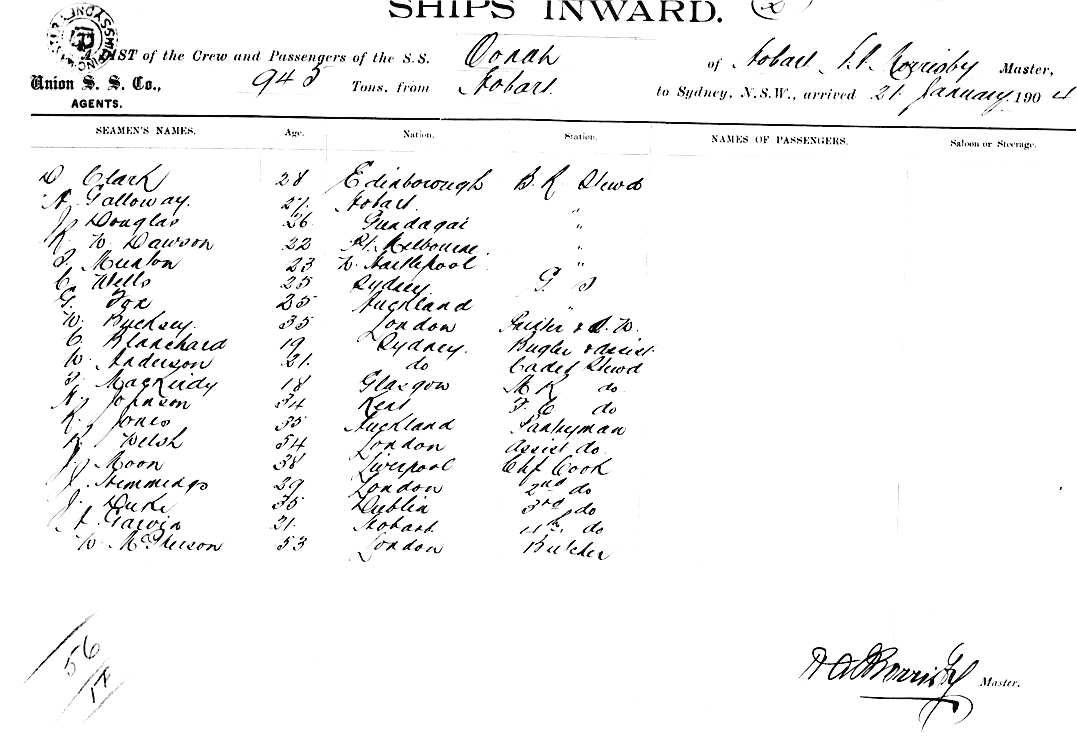 SHIPS INWARD.
A LIST of the Crew and Passengers of the S.S. Oonah of Hobart Morrisby Master,
Union S. S. Co., 945 Tons, from Hobart to Sydney, N.S.W., arrived 21 January 1904
AGENTS.
SEAMEN'S NAMES. Age. Nation. Station. NAMES OF PASSENGERS. Saloon or Steerage.
D Clark 28 Edinborough B. R Stewd
A Galloway. 27 Hobart
J Douglas 26 Gundagai "
R. W. Dawson 22 Pt. Melbourne. "
Munton 23 W. Hartlepool "
C Wells 25 Sydney. G. S
G. Fox 25 Auckland "
W. Bucksey. 35 London
C Blanchard 19 Sydney. Bugler & assist.
W. Anderson 21. do Cadet Stewd
18 Glasgow M R do
A. Johnson 34 Kent F. C do
R. Jones 35 Auckland Pantryman
R Welsh 54 London Assist do.
J. Moon 38 Liverpool Chf Cook
J Hemmings 29 London 2nd do
J. Duke 35 Dublin 3rd do
A Garvin 21. Hobart. 4th. do
W. McPherson 53 London Butcher
56
Morrisby Master.